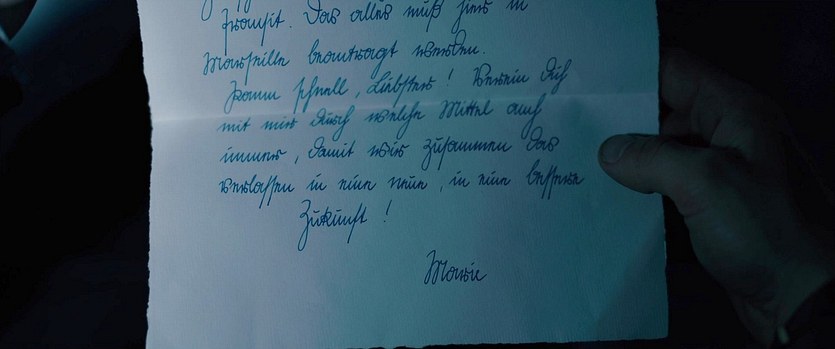 Transit. Das alles muß hier in
Marseille beantragt werden.
Komm schnell, Liebster! Verein Dich
mit mir durch welche Mittel auch
immer, damit wir zusammen das
verlassen in eine neue, in eine bessere
Zukunft!
Marie